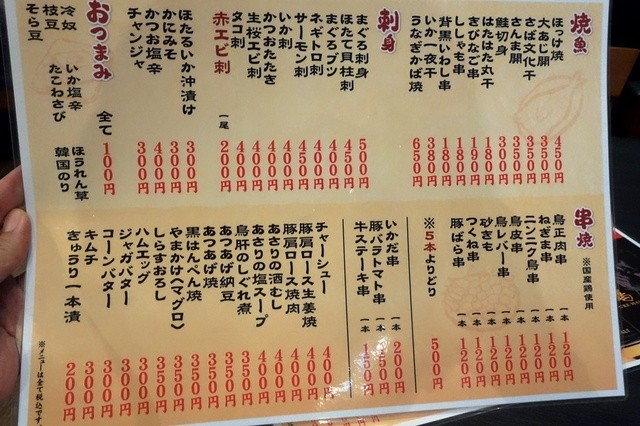 焼魚
ほっけ焼 450円
大あじ開 350円
さば文化干 350円
さんま開 300円
鮭切身 300円
はたはた丸干 180円
きびなご串 190円
ししゃも串 180円
背黒いわし串 180円
いか一夜干 380円
うなぎかば焼 650円
刺身
まぐろ刺身 500円
ほたて貝柱刺 450円
まぐろブツ 400円
ネギトロ刺 400円
サーモン刺 450円
いか刺 400円
かつおたたき 400円
生桜エビ刺 400円
タコ刺 400円
赤エビ刺 一尾 200円
おつまみ
ほたるいか沖漬け 300円
かにみそ 300円
かつお塩辛 400円
チャンジャ 300円
全て 100円
冷奴 いか塩辛 ほうれん草
枝豆 たこわさび 韓国のり
そら豆
串焼
※国産鶏使用
鳥正肉串 一本 120円
ねぎま串 一本 120円
ニンニク鳥串 一本 120円
鳥皮串 一本 120円
鳥レバー串 一本 120円
砂ぎも 一本 120円
つくね串 一本 120円
豚ばら串 一本 120円
※5本よりどり 500円
いかだ串 一本 200円
豚バラトマト串 一本 150円
牛ステーキ串 一本 150円
チャーシュー 400円
豚肩ロース生姜焼 400円
豚肩ロース焼肉 400円
あさりの酒むし 400円
あさりの塩スープ 400円
鳥肝のしぐれ煮 350円
あつあげ納豆 350円
あつあげ焼 300円
黒はんぺん焼 350円
やまかけ(マグロ) 350円
しらすおろし 300円
ハムエッグ 300円
ジャガバター 300円
コーンバター 300円
キムチ 300円
きゅうり一本漬 200円
※メニューは全て税込です。